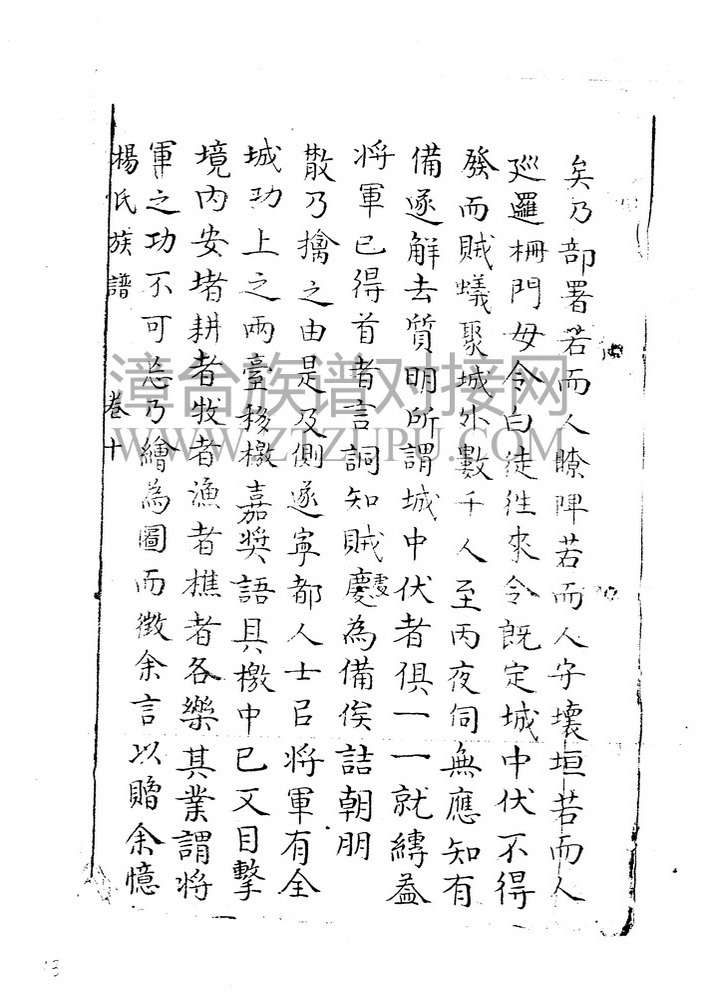 矣乃部署若而人瞭陴若而人守壞垣若而人
廵邏柵門毋令白徒徃來令既定城中伏不得
發而賊蟻聚城外數千人至丙夜伺無應知有
備遂解去質明所謂城中伏者俱一一就縛葢
將軍已得首者言詗知賊慶為備俟詰朝朋
散乃擒之由是及側遂寧都人士曰將軍有全
城功上之兩臺移檄嘉奬語具檄中已又目擊
境內安堵耕者牧者漁者樵者各樂其業謂將
軍之功不可忘乃繪為圖而徵余言以贈余憶
楊氏族譜 卷十
漳台族谱对接网
WWW.ZTZUPU.COM
13